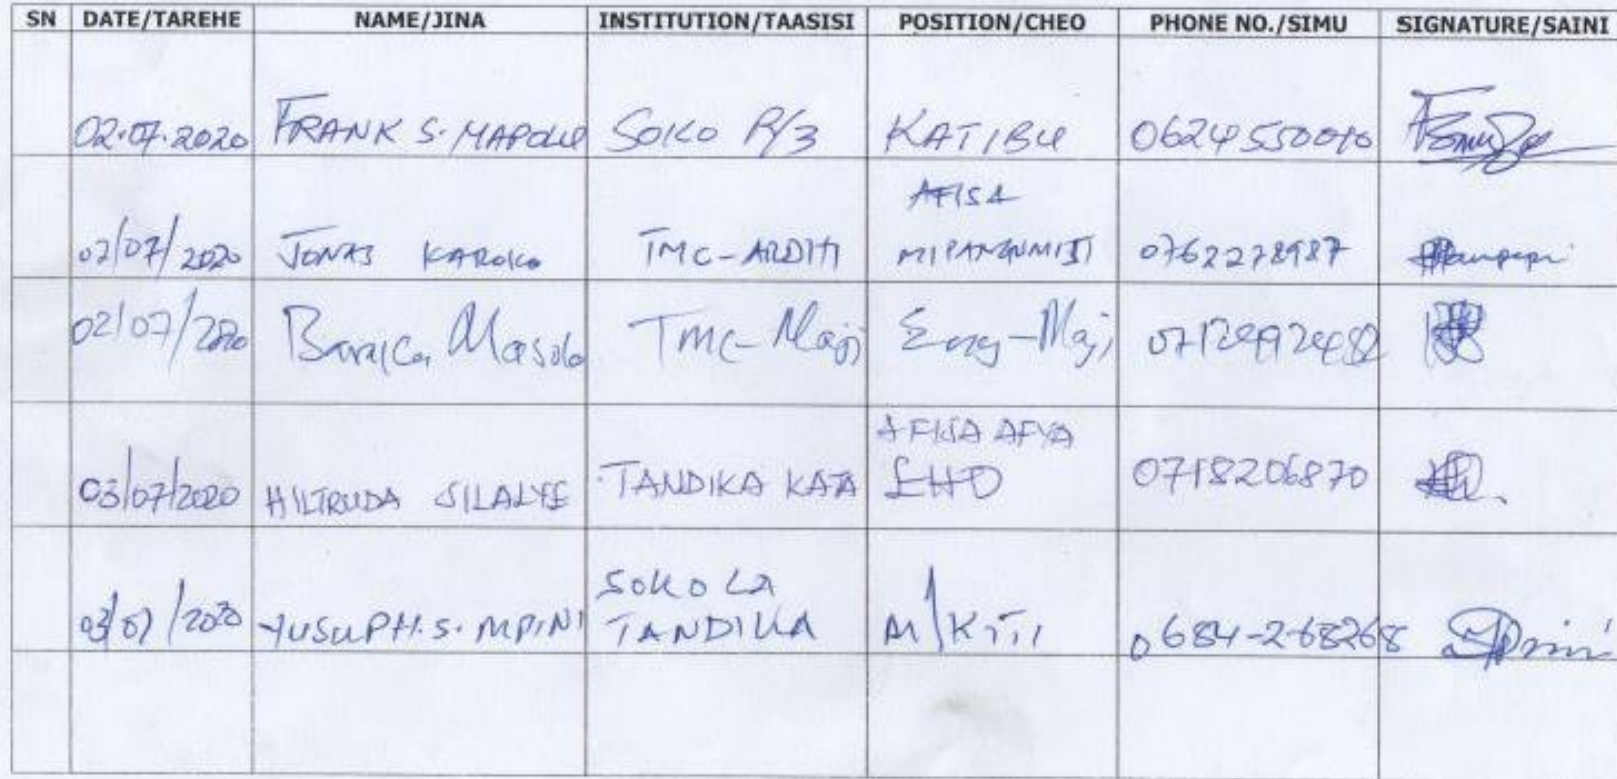 SN DATE/TAREHE NAME/JINA INSTITUTION/TAASISI POSITION/CHEO PHONE NO./SIMU SIGNATURE/SAINI
02.07.2020 FRANK S. SOKO KATIBU
AFISA
02/07/2020 JONAS KAROKO TMC-ARDHI MIPANGOMIJI 0762278987
02/07/2020 Baraka Masolo TMC-Maji Eng-Maji
AFISA AFYA
03/07/2020 HILTRUDA SILALYE TANDIKA KATA EHO 0718206870
SOKO LA
03/07/2020 YUSUPH.S. MPINI TANDIKA M/KITI 0684-268268